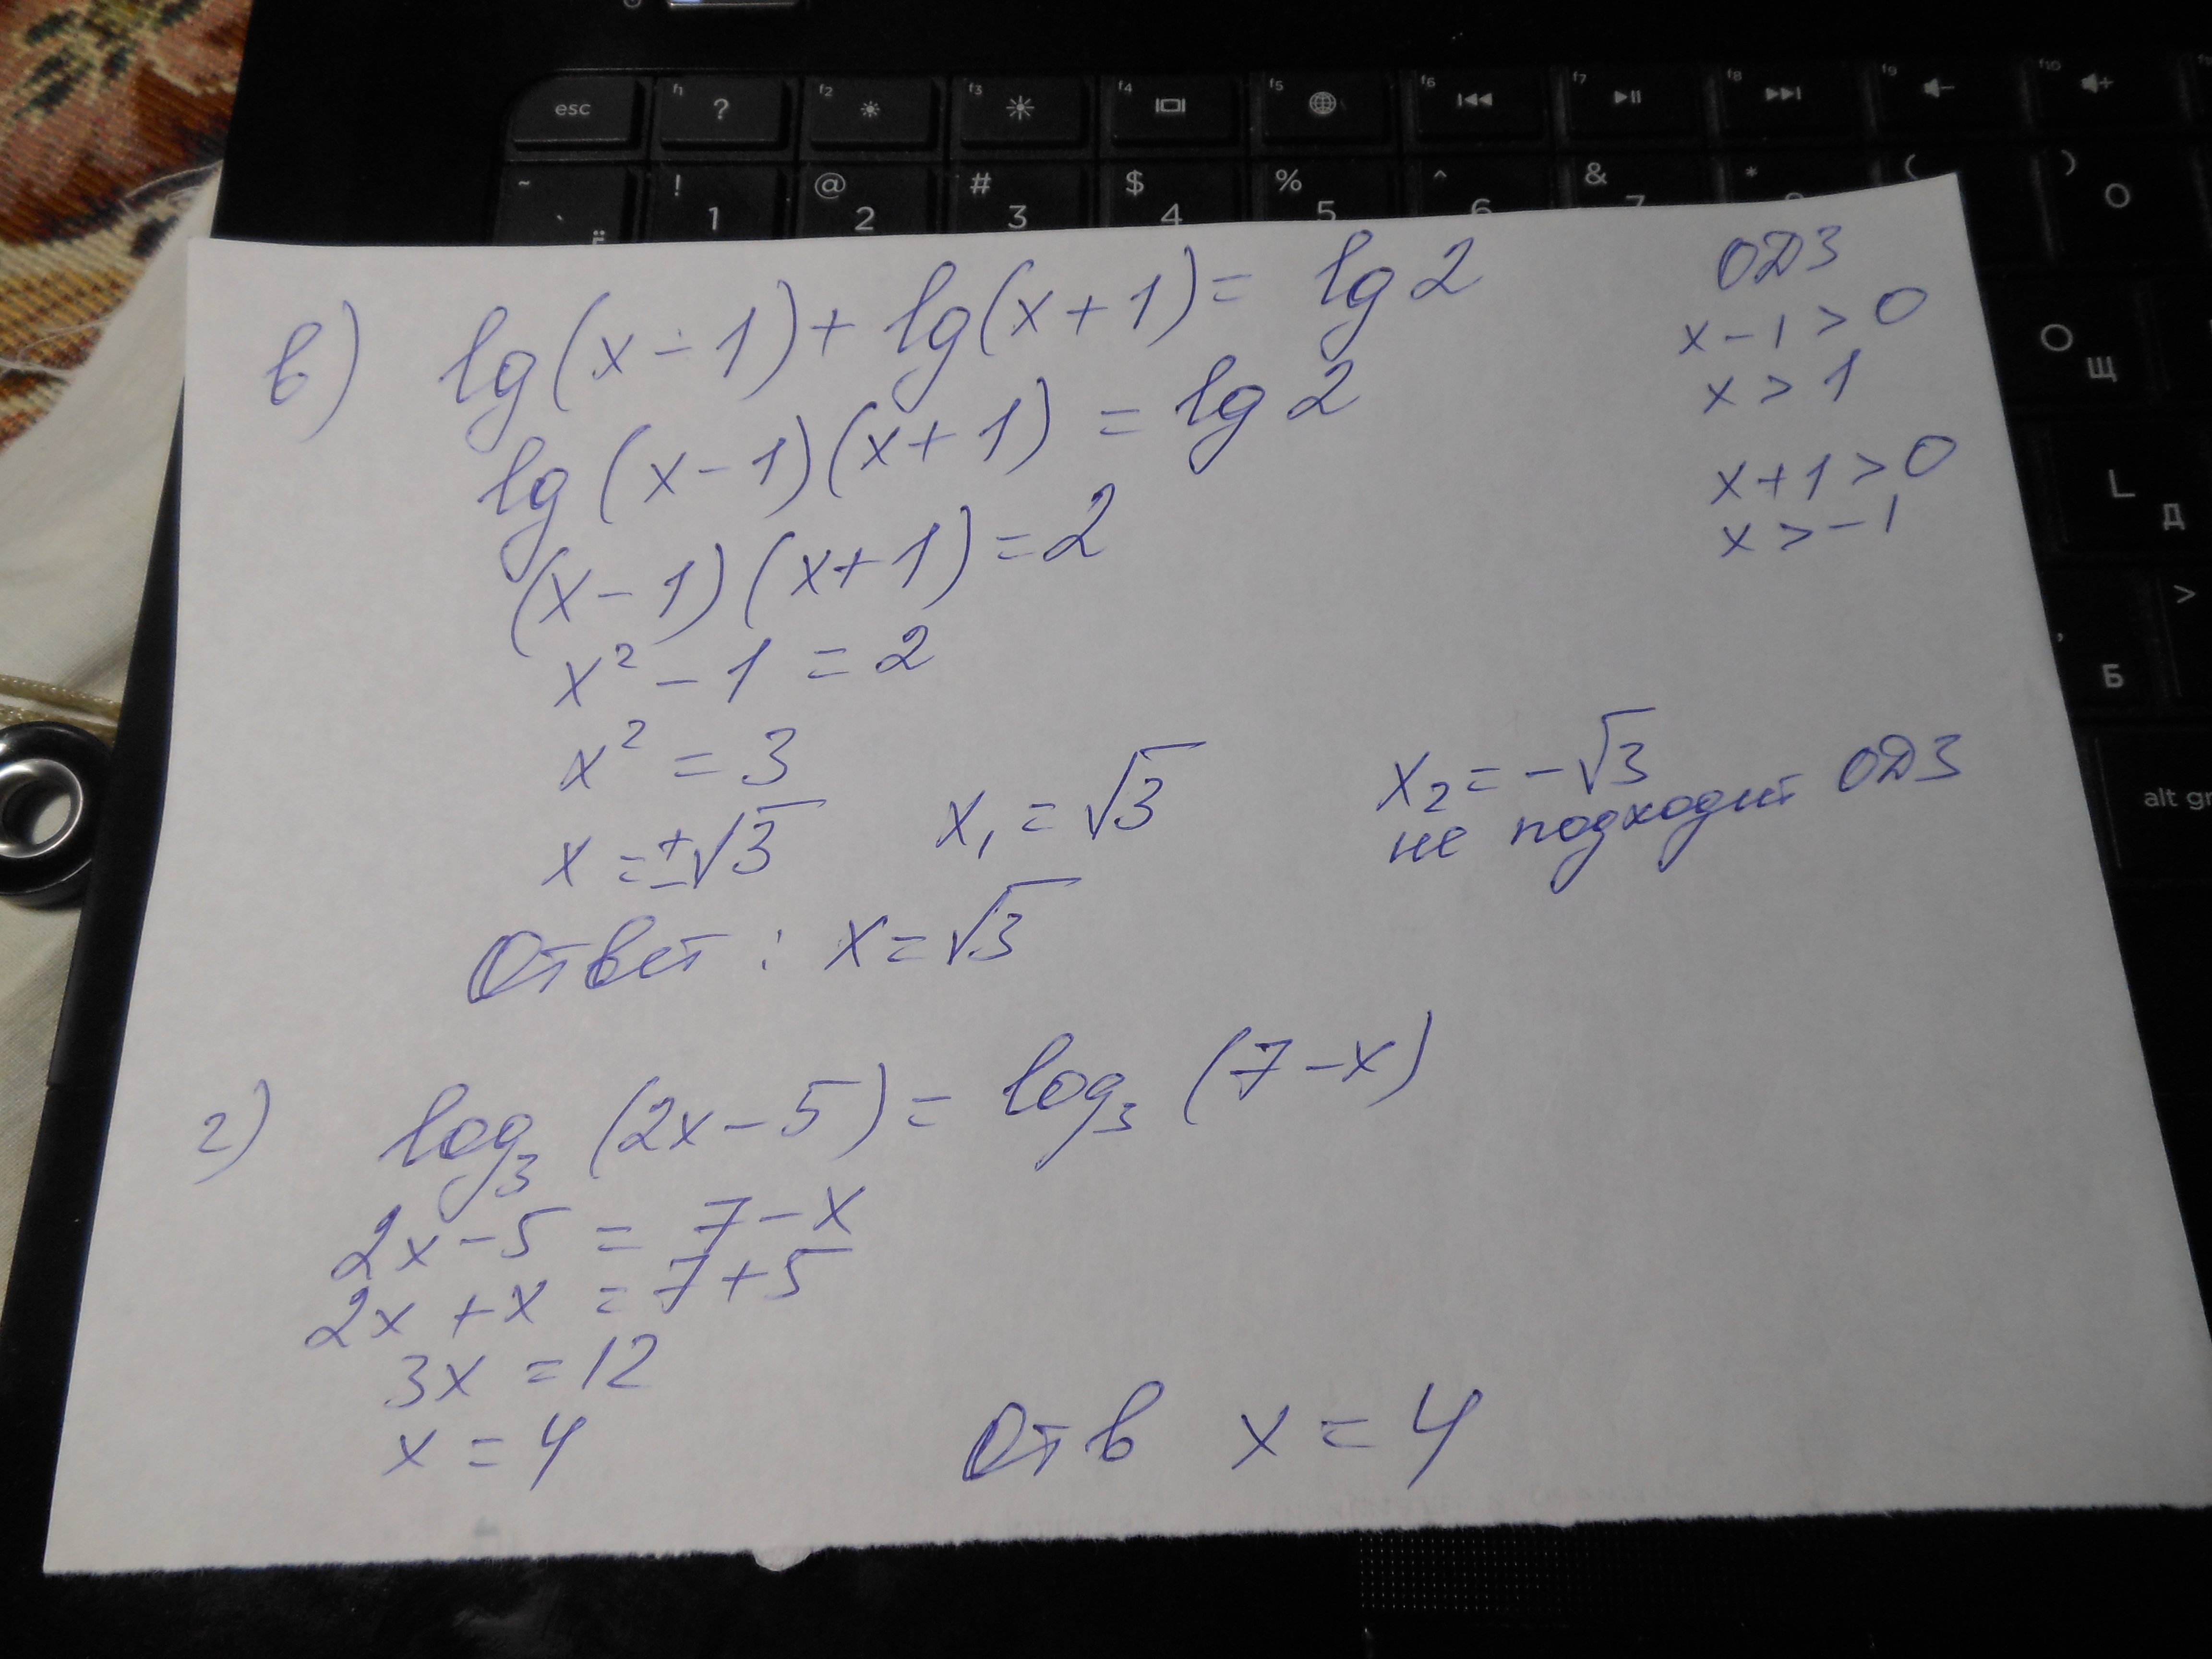 esc f1 ? f2 f3 f4 f5 f6 f7 f8 f9 f10
~ ` ё ! 1 @ 2 # 3 $ 4 % 5 ^ 6 & 7 * ( ) 0
в) lg(x-1)+lg(x+1)= lg2
lg(x-1)(x+1) = lg2
(x-1)(x+1)=2
x² - 1 = 2
x² = 3
x = ±√3 x₁ = √3 x₂ = -√3
не подходит ОДЗ
Ответ : x = √3
ОДЗ
x-1 > 0
x > 1
x+1 > 0
x > -1
г) log₃ (2x-5) = log₃ (7-x)
2x-5 = 7-x
2x + x = 7+5
3x = 12
x = 4 Отв x = 4
O Щ
L Д
> Б
alt gr